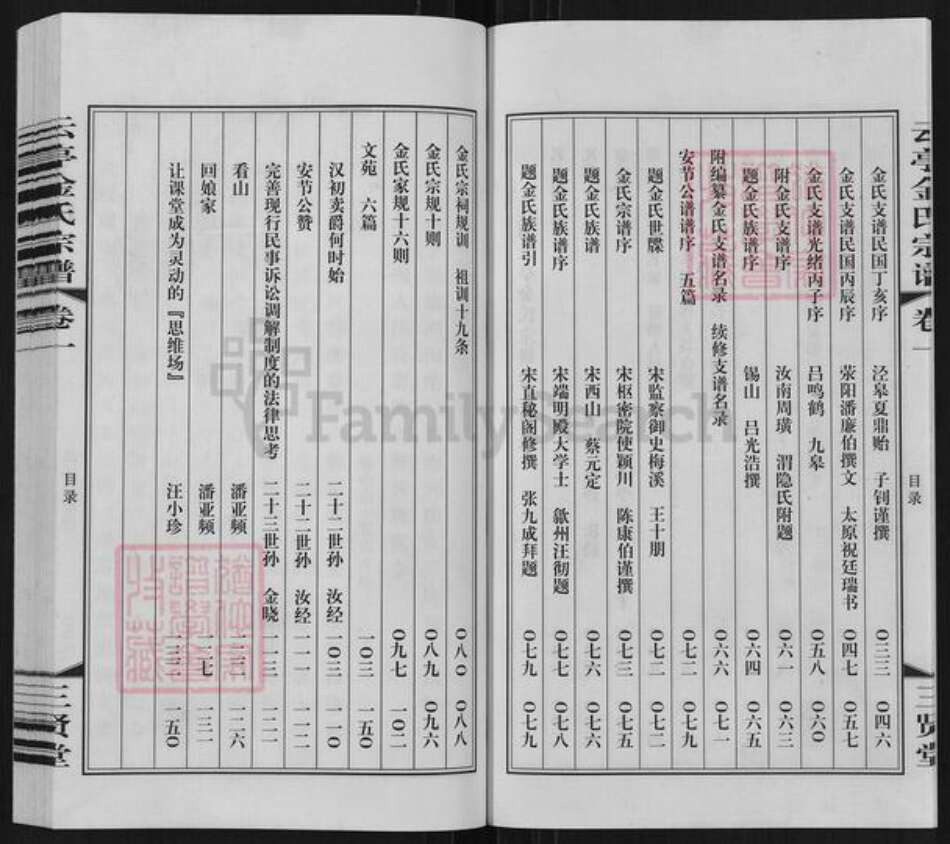 云亭金氏宗谱 卷一 目录 三贤堂
金氏支谱民国丁亥序 泾皋夏鼎贻 子钊谨撰 〇三三 〇四六
金氏支谱民国丙辰序 荥阳潘廉伯撰文 太原祝廷瑞书 〇四七 〇五七
金氏支谱光绪丙子序 吕鸣鹤 九皋 〇五八 〇六〇
附金氏支谱序 汝南周璜 渭隐氏附题 〇六一 〇六三
题金氏族谱序 锡山 吕光浩撰 〇六四 〇六五
附编纂金氏支谱名录 续修支谱名录 〇六六 〇七一
安节公谱谱序 五篇 〇七二 〇七九
题金氏世牒 宋监察御史梅溪 王十朋 〇七二 〇七二
金氏宗谱序 宋枢密院使颖川 陈康伯谨撰 〇七三 〇七五
题金氏族谱 宋西山 蔡元定 〇七六 〇七六
题金氏族谱序 宋端明殿大学士 歙州汪彻题 〇七七 〇七八
题金氏族谱引 宋直秘阁修撰 张九成拜题 〇七九 〇七九
金氏宗祠规训 祖训十九条 〇八〇 〇八八
金氏宗规十则 〇八九 〇九六
金氏家规十六则 〇九七 一〇二
文苑 六篇 一〇三 一五〇
汉初卖爵何时始 二十二世孙 汝经 一〇三 一一〇
安节公赞 二十二世孙 汝经 一一一 一一二
完善现行民事诉讼调解制度的法律思考 二十三世孙 金晓 一一三 一二二
看山 潘亚频 一二六
回娘家 潘亚频 一三一
让课堂成为灵动的『思维场』 汪小珍 一三二 一五〇
云亭金氏宗谱 卷一 目录 三贤堂
FamilySearch